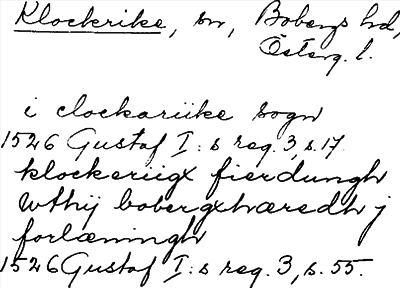 Klockrike, sn, Bobergs hd,
Österg. l.
i clockariike sogn
1526 Gustaf I:s reg. 3, s. 17.
klockeriigx fierdungh
wthij bobergxhæredh j
forlæningh
1526 Gustaf I:s reg. 3, s. 55.